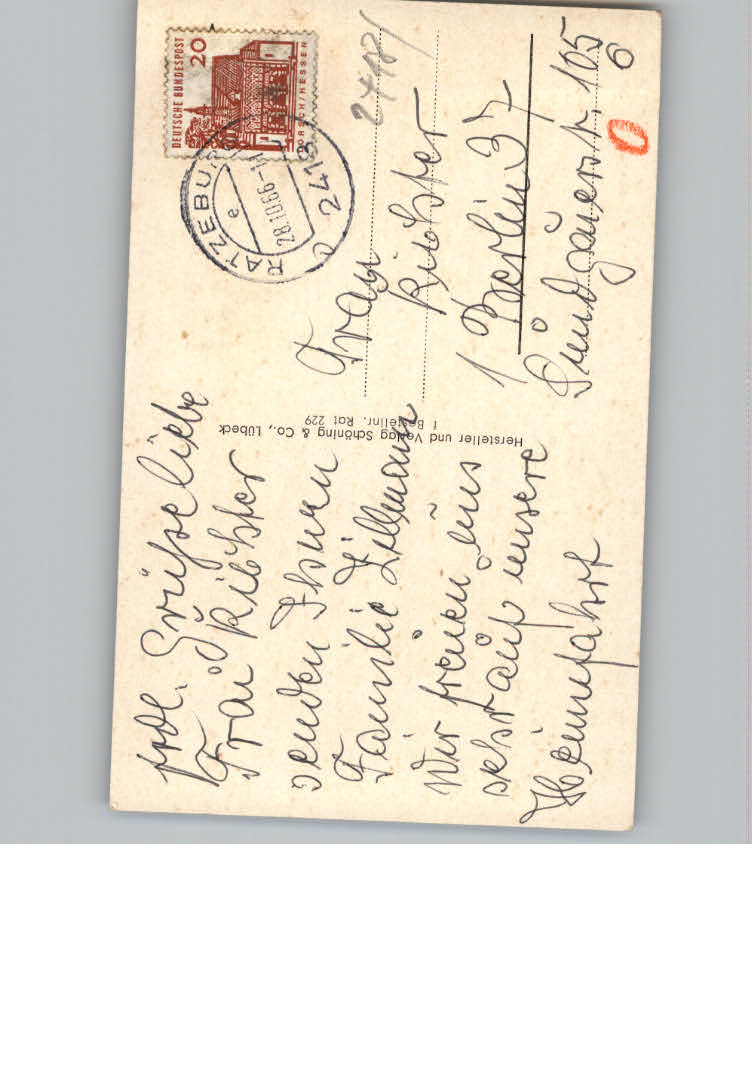 frdl. Grüße liebe
Frau Richter
senden Ihnen
Familie
Wir freuen uns
sehr auf unsere
Heimfahrt
Hersteller und Verlag Schöning & Co., Lübeck
Bestellnr. Rat 229
DEUTSCHE BUNDESPOST
20
LORSCH/HESSEN
RATZEBURG
e
28.10.66-1
2418
2418/
Frau
Richter
1 Berlin 37
Sundgauerstr. 105
6
0